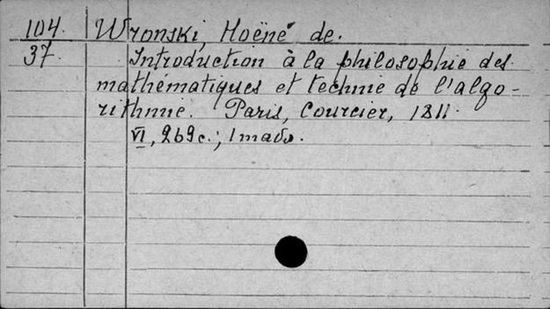 104 Wronski, Hoëné de.
37. Introduction à la philosophie des
mathématiques et technie de l'algo-
rithmie. Paris, Courcier, 1811.
VI, 269c.;